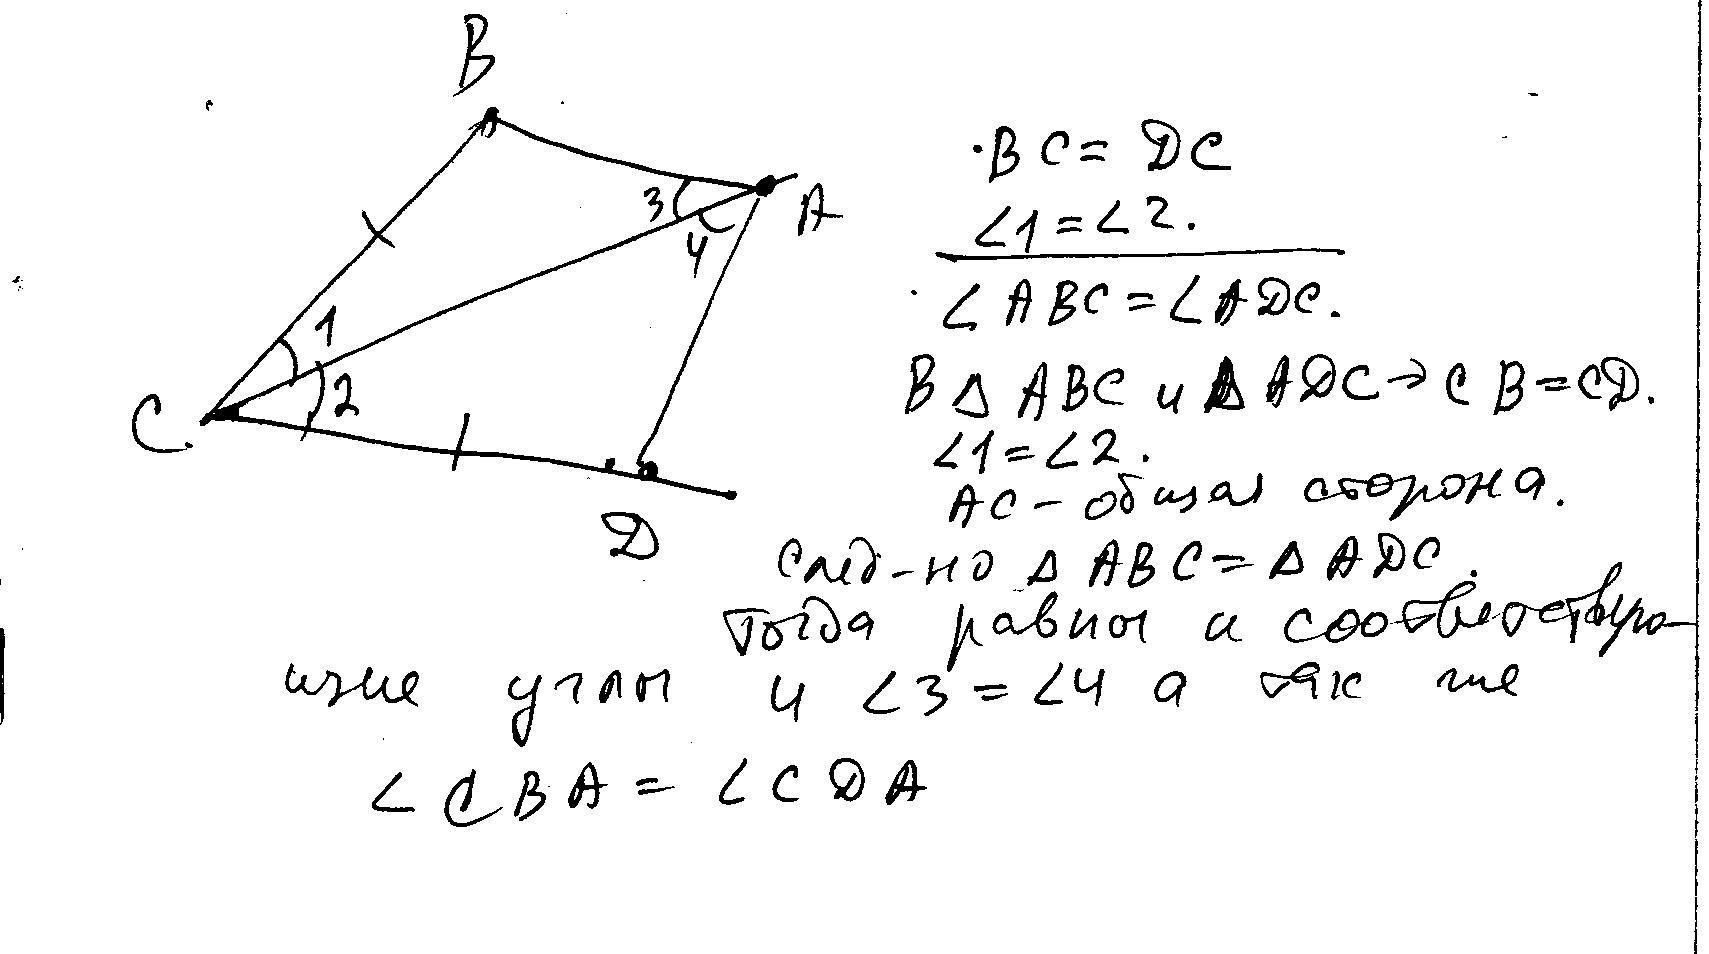 B
A
3
4
1
2
C.
D
·BC = DC
∠1 = ∠2.
∠ABC = ∠ADC.
В Δ ABC и Δ ADC → CB = CD.
∠1 = ∠2.
AC – общая сторона.
След-но Δ ABC = Δ ADC.
Тогда равны и соответствую-
щие углы и ∠3 = ∠4 а так же
∠CBA = ∠CDA